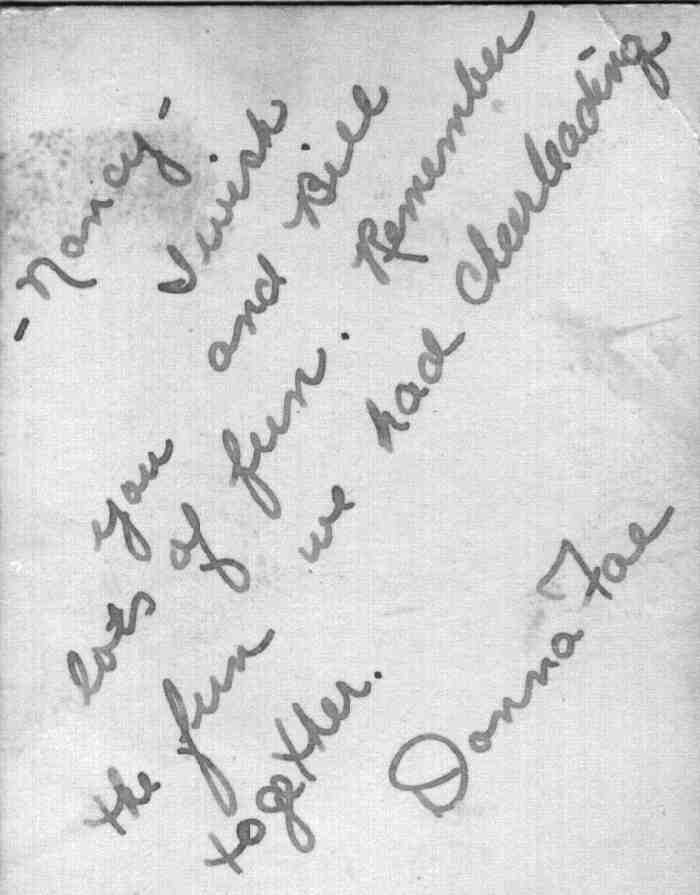 -Nancy-
I wish
you and Bill
lots of fun. Remember
the fun we had cheerleading
together.
Donna Fae